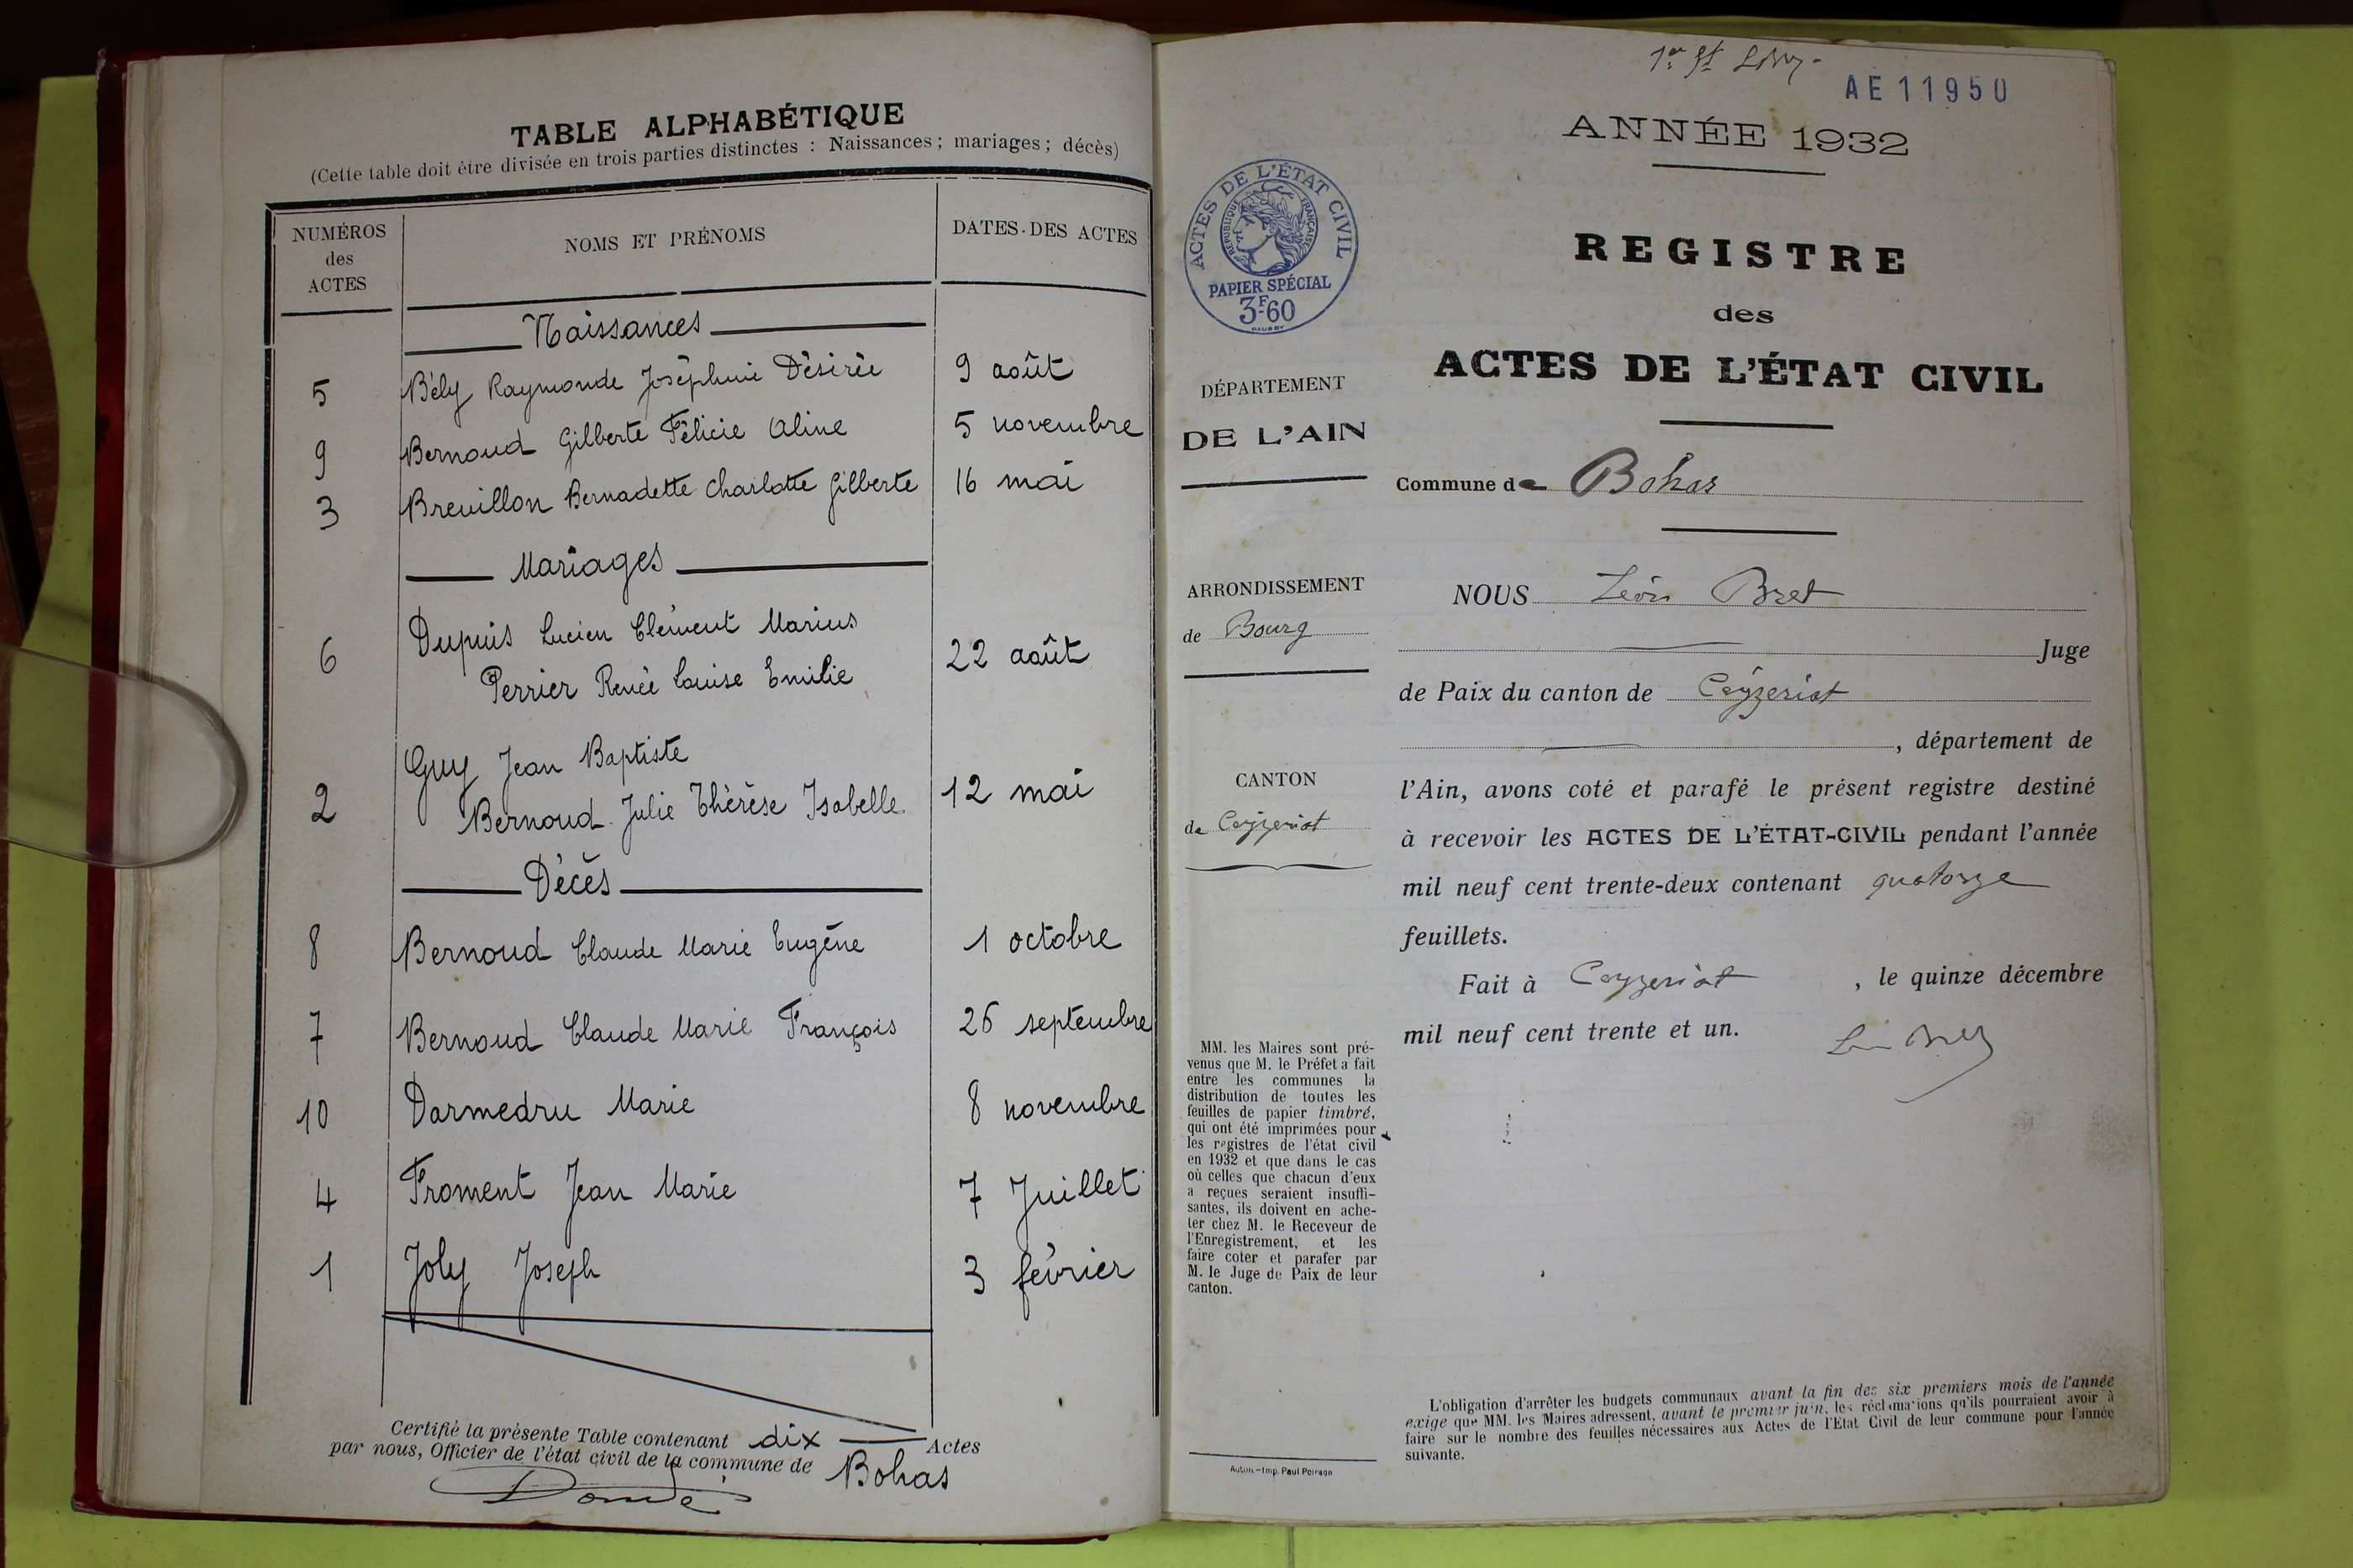 TABLE ALPHABÉTIQUE
(Cette table doit être divisée en trois parties distinctes : Naissances ; mariages ; décès)
NUMÉROS des ACTES NOMS ET PRÉNOMS DATES DES ACTES
Naissances
5 Bély Raymonde Joséphine Désirée 9 août
9 Bernoud Gilberte Félicie Aline 5 novembre
3 Brevillon Bernadette Charlotte Gilberte 16 mai
Mariages
Dupuis Lucien Clément Marius
6 Perrier Renée Louise Emilie 22 août
Guy Jean Baptiste
2 Bernoud Julie Thérèse Isabelle 12 mai
Décès
8 Bernoud Claude Marie Eugène 1 octobre
7 Bernoud Claude Marie François 26 septembre
10 Darmedru Marie 8 novembre
4 Froment Jean Marie 7 Juillet
1 Joly Joseph 3 février
Certifié la présente Table contenant dix Actes
par nous, Officier de l'état civil de la commune de Bohas
AE 11950
ANNÉE 1932
ACTES DE L'ÉTAT CIVIL
RÉPUBLIQUE FRANÇAISE
PAPIER SPÉCIAL
3F60
REGISTRE
des
ACTES DE L'ÉTAT CIVIL
DÉPARTEMENT
DE L'AIN
Commune de Bohas
ARRONDISSEMENT
de Bourg
CANTON
de Ceyzeriat
NOUS Léon Bret
Juge
de Paix du canton de Ceyzeriat
, département de
l'Ain, avons coté et parafé le présent registre destiné
à recevoir les ACTES DE L'ÉTAT-CIVIL pendant l'année
mil neuf cent trente-deux contenant quatorze
feuillets.
Fait à Ceyzeriat , le quinze décembre
mil neuf cent trente et un.
MM. les Maires sont pré-
venus que M. le Préfet a fait
entre les communes la
distribution de toutes les
feuilles de papier timbré,
qui ont été imprimées pour
les registres de l'état civil
en 1932 et que dans le cas
où celles que chacun d'eux
a reçues seraient insuffi-
santes, ils doivent en ache-
ter chez M. le Receveur de
l'Enregistrement, et les
faire coter et parafer par
M. le Juge de Paix de leur
canton.
L'obligation d'arrêter les budgets communaux avant la fin des six premiers mois de l'année
exige que MM. les Maires adressent, avant le premier juin, les réclamations qu'ils pourraient avoir à
faire sur le nombre des feuilles nécessaires aux Actes de l'Etat Civil de leur commune pour l'année
suivante.
Imp. Paul